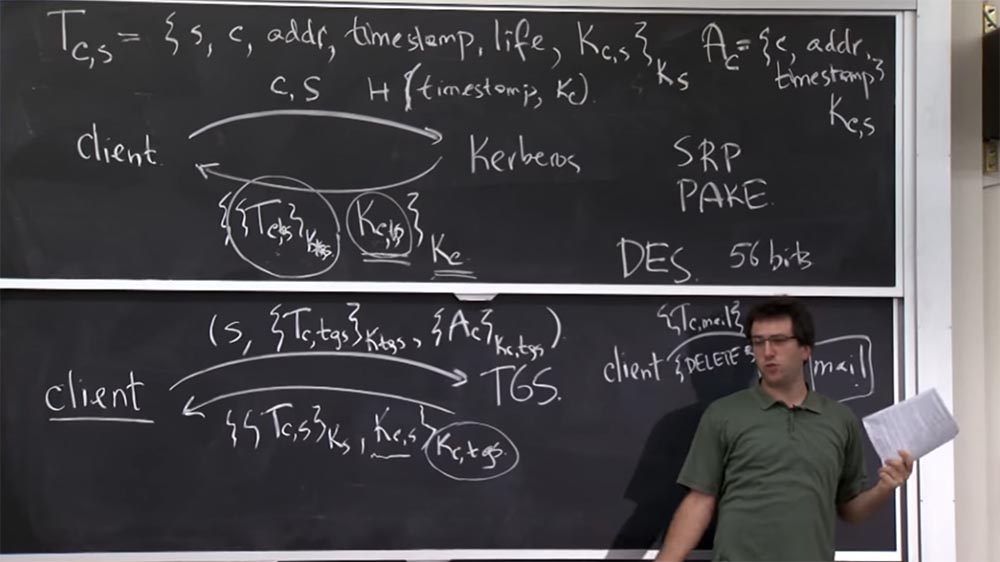 T_c,s = { s, c, addr, timestamp, life, K_c,s }_K_s
A_c = { c, addr, timestamp }_K_c,s
c, s H (timestamp, K_c)
client Kerberos
{{T_c,tgs}_K_tgs K_c,tgs}_K_c
SRP
PAKE
DES. 56 bits
(s, {T_c,tgs}_K_tgs, {A_c}_K_c,tgs)
client TGS.
{{T_c,s}_K_s, K_c,s}_K_c,tgs
{T_c,mail}
client {DELETE mail